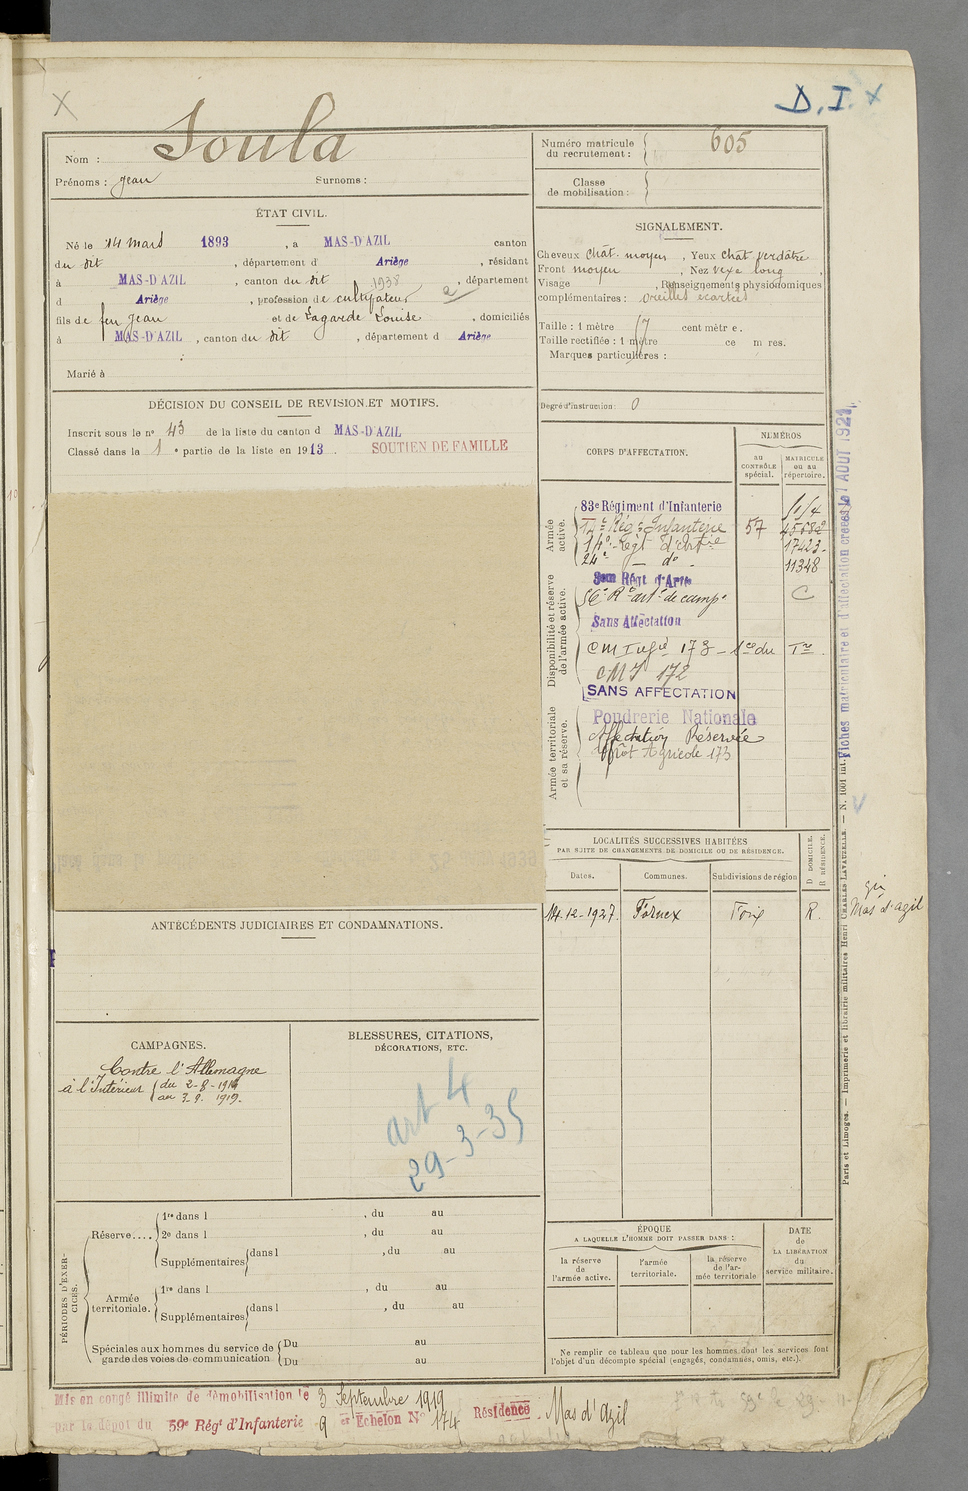 D. I. X
X
Nom : Soula
Prénoms : Jean Surnoms :
Numéro matricule du recrutement : 605
Classe de mobilisation :
ÉTAT CIVIL.
Né le 14 mars 1893, à MAS-D'AZIL canton
du dit, département d' Ariège, résidant
à MAS-D'AZIL, canton du dit 1938, département
d Ariège, profession de cultivateur
fils de feu Jean et de Lagarde Louise, domiciliés
à MAS-D'AZIL, canton du dit, département d Ariège
Marié à
SIGNALEMENT.
Cheveux chât. moyen, Yeux chât verdâtre
Front moyen, Nez vexe long,
Visage , Renseignements physionomiques
complémentaires : oreilles écartées
Taille : 1 mètre 67 centimètre.
Taille rectifiée : 1 mètre ce m res.
Marques particulières :
Degré d'instruction : 0
DÉCISION DU CONSEIL DE REVISION ET MOTIFS.
Inscrit sous le n° 43 de la liste du canton d MAS-D'AZIL
Classé dans la 1e partie de la liste en 1913. SOUTIEN DE FAMILLE
CORPS D'AFFECTATION.
NUMÉROS
au CONTRÔLE spécial.
MATRICULE ou au répertoire.
Armée active.
83e Régiment d'Infanterie
14e Rég. Infanterie 57
14e Regt d'Artie 17423
24e — do - 11348
Disponibilité et réserve de l'armée active.
3em Régt d'Arte
56e Rt artie de campe C
Sans Affectation
CM Infie 173
CMI 172
SANS AFFECTATION
Armée territoriale et sa réserve.
Poudrerie Nationale
Affectation Réservée
Dépôt Agricole 173
Fiches matriculaire et d'affectation créées le 7 AOUT 1921
LOCALITÉS SUCCESSIVES HABITÉES
PAR SUITE DE CHANGEMENTS DE DOMICILE OU DE RÉSIDENCE.
Dates. Communes. Subdivisions de région D DOMICILE. R RÉSIDENCE.
14-12-1927. Fornex Foix R.
Mas d'Azil
ANTÉCÉDENTS JUDICIAIRES ET CONDAMNATIONS.
CAMPAGNES.
Contre l'Allemagne
à l'Intérieur du 2-8-1914
au 3.9.1919.
BLESSURES, CITATIONS,
DÉCORATIONS, ETC.
art 4
29-3-35
PÉRIODES D'EXERCICES.
Réserve.... 1re dans l , du au
2e dans l , du au
Supplémentaires dans l , du au
Armée territoriale. 1re dans l , du au
Supplémentaires dans l , du au
Spéciales aux hommes du service de garde des voies de communication Du au
Du au
ÉPOQUE
A LAQUELLE L'HOMME DOIT PASSER DANS :
la réserve de l'armée active.
l'armée territoriale.
la réserve de l'armée territoriale
DATE de LA LIBÉRATION du service militaire.
Ne remplir ce tableau que pour les hommes dont les services font
l'objet d'un décompte spécial (engagés, condamnés, omis, etc.).
Paris et Limoges. — Imprimerie et librairie militaires Henri CHARLES-LAVAUZELLE. — N. 1001 int.
Mis en congé illimité de démobilisation le 3 Septembre 1919
par le dépôt du 59e Régt d'Infanterie 9 er Echelon N° 174 Résidence. Mas d'Azil